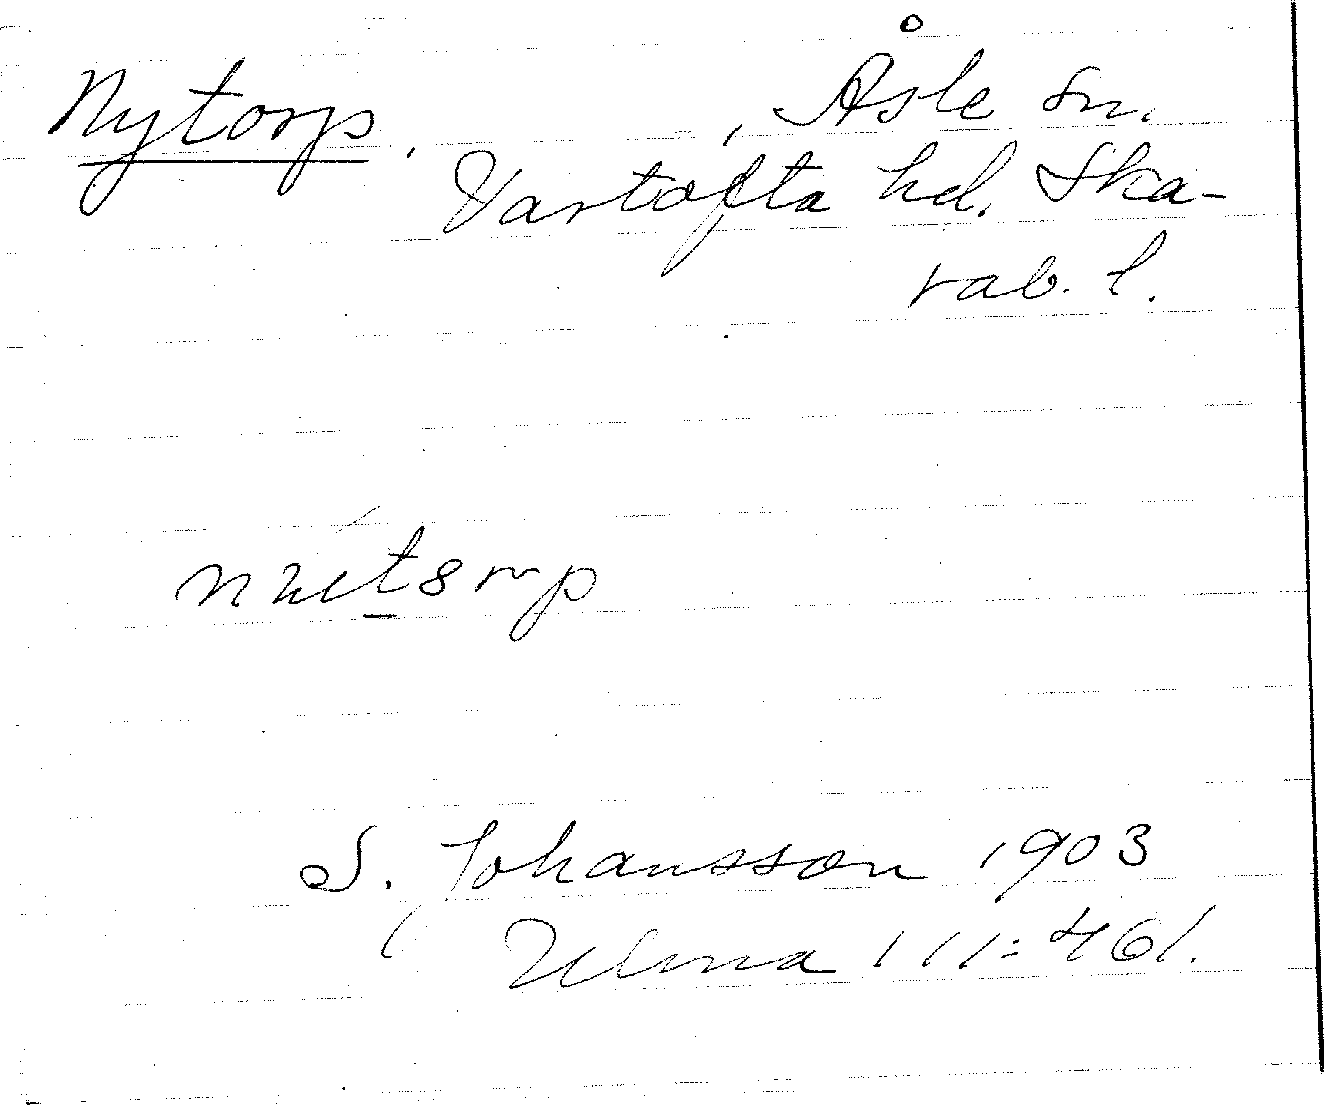 Nytorp. , Åsle sn.
Vartofta hd. Ska-
rab. l.
S. Johansson 1903
(Ulma 111:461.